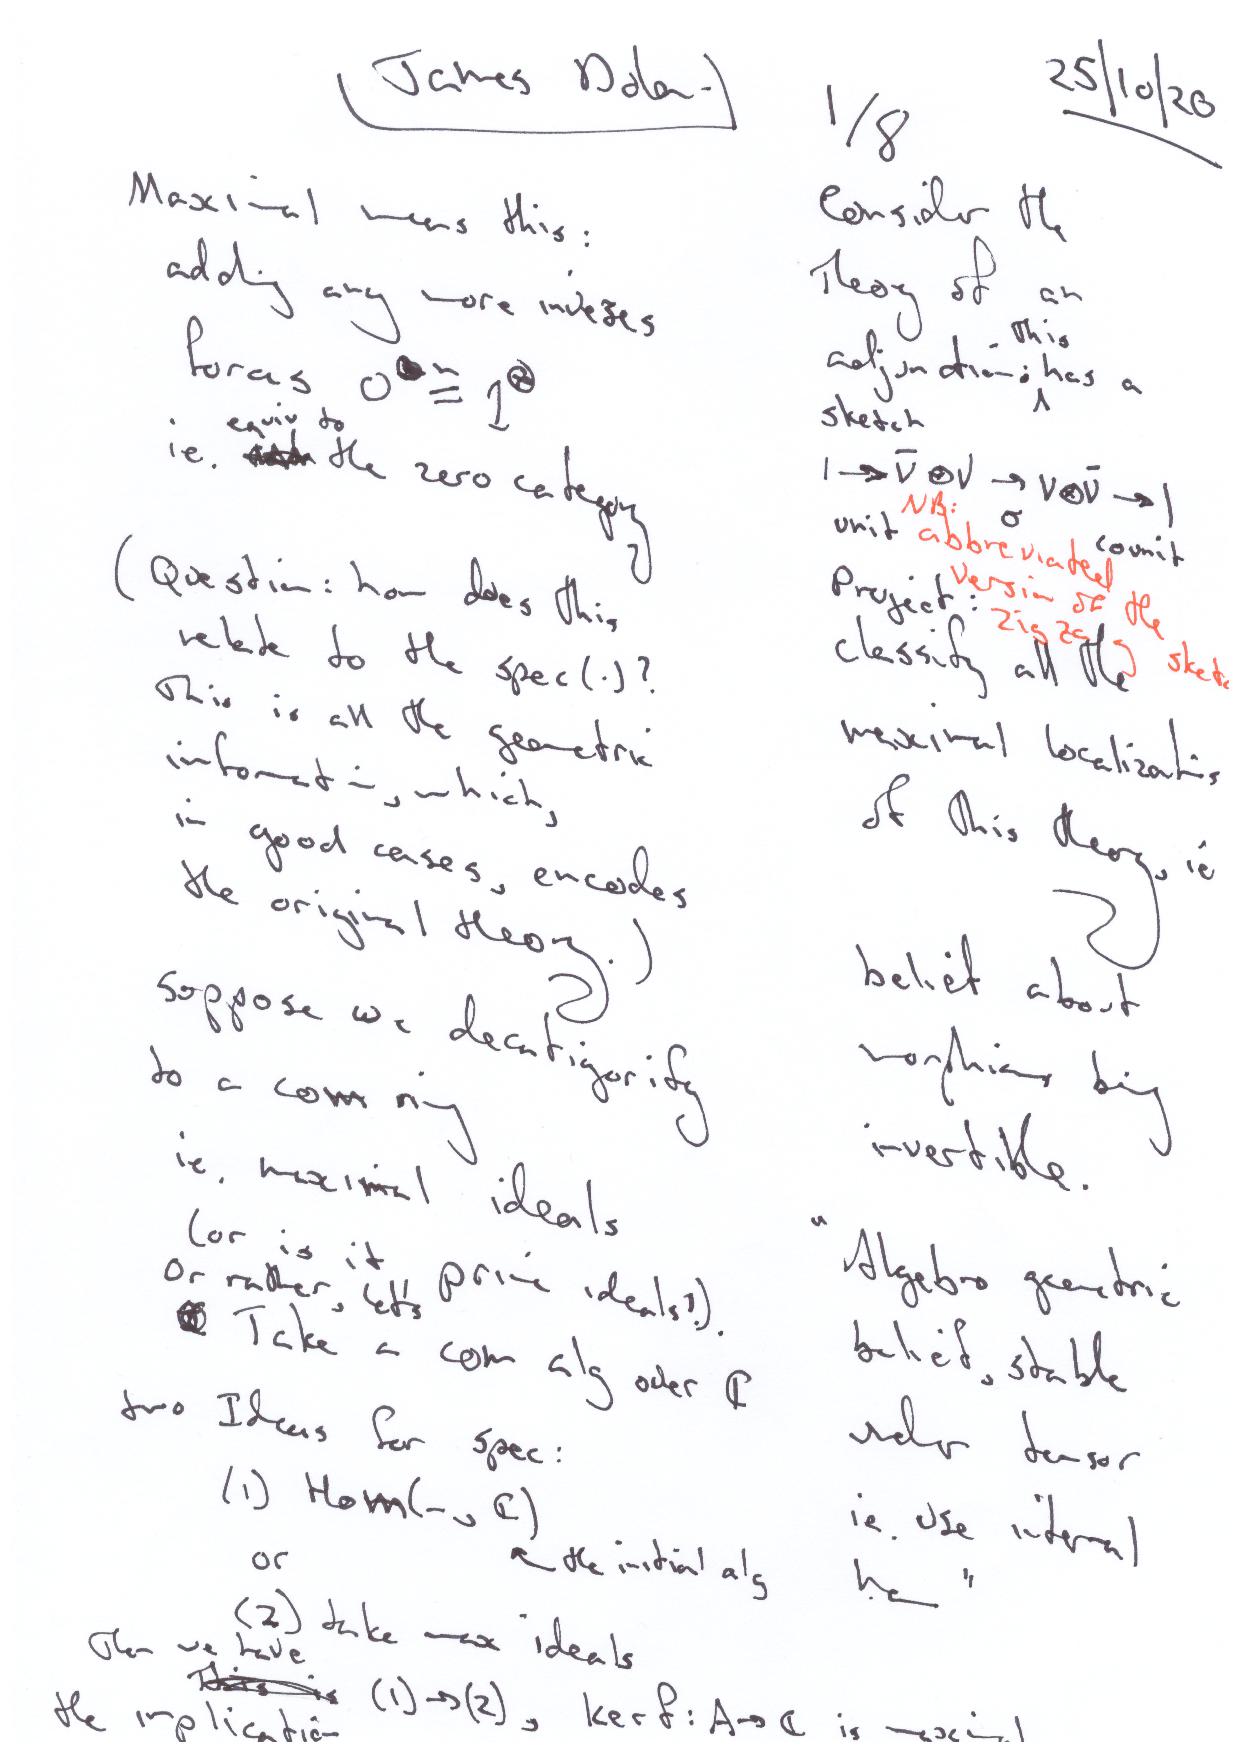 James Dolan
1/8
25/10/20
Maximal means this:
adding any more inverses
forces 0 ≅ 1
ie. equiv to the zero category
(Question: how does this
relate to the spec(.)?
This is all the geometric
information, which,
in good cases, encodes
the original theory.)
Suppose we decatigorify
to a com ring
ie. maximal ideals
(or is it prime ideals?).
Or rather, let's
Take a com alg over ℂ
two Ideas for spec:
(1) Hom(-, ℂ)
← the initial alg
or
(2) take max ideals
Then we have
the implication (1)→(2), ker f: A→ℂ is maximal
Consider the
Theory of an
adjunction: this has a
sketch
1 → V̄ ⊗ V → V ⊗ V̄ → 1
unit σ counit
NB:
abbreviated
version of the
zig zag sketch
Project:
classify all the
maximal localizations
of this theory, ie
belief about
morphisms being
invertible.
"Algebro geometric
belief, stable
under tensor
ie. use internal
hom"